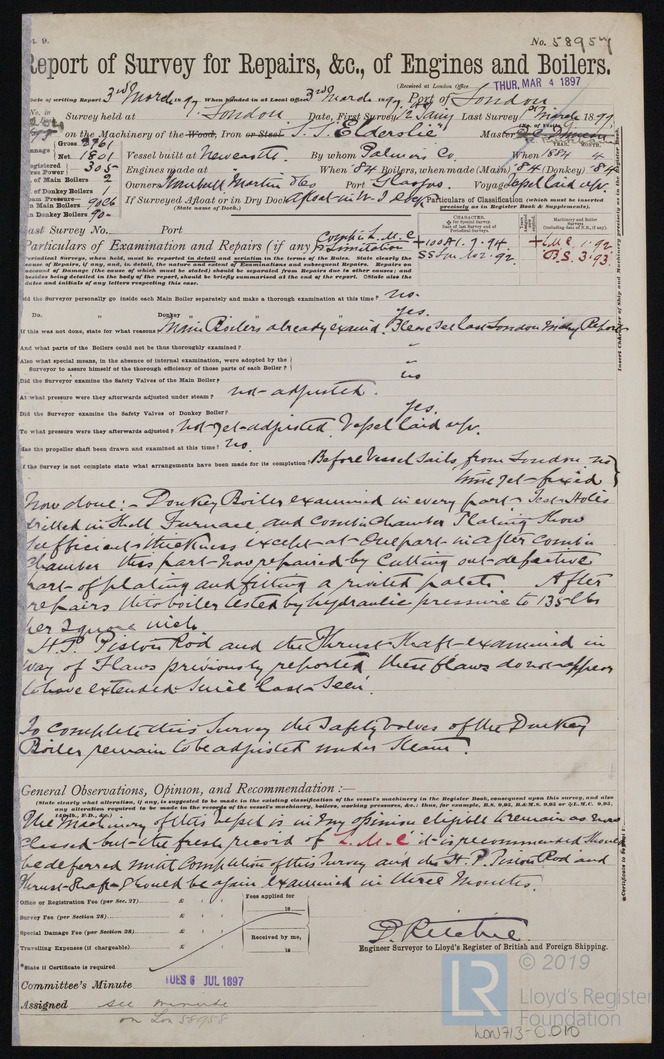 No. 58957
Report of Survey for Repairs, &c., of Engines and Boilers.
(Received at London Office THUR. MAR 4 1897
Date of writing Report 3rd March 1897 When handed in at Local Office 3rd March 1897 Port of London
No. in Survey held at London Date, First Survey Last Survey March 1897
on the Machinery of the Wood, Iron or Steel S.S. "Elderslie" Master
Gross 2761
Net 1801
Vessel built at Newcastle By whom Palmers Co. When 1884 4
Registered Horse Power 305
Engines made at When 84 Boilers, when made (Main) 84 (Donkey) 84
of Main Boilers 2
Owners Turnbull Martin & Co Port Glasgow Voyage Vessel laid up.
of Donkey Boilers
If Surveyed Afloat or in Dry Dock Afloat in W. I. Dock
(State name of Dock.)
Steam Pressure—
in Main Boilers 90 lb
in Donkey Boilers 90
Particulars of Classification (which must be inserted precisely as in Register Book & Supplements).
CHARACTER.
Machinery and Boiler Surveys
+100A1. 7.94. + L.M.C. 1.92
SS Lon. No. 2. 92. B.S. 3.93.
Last Survey No. Port
Particulars of Examination and Repairs (if any) Complt L.M.C. & Limitation
Periodical Surveys, when held, must be reported in detail and seriatim in the terms of the Rules. State clearly the
cause of Repairs, if any, and, in detail, the nature and extent of Examinations and subsequent Repairs. Repairs on
account of Damage (the cause of which must be stated) should be separated from Repairs due to other causes; and
besides being detailed in the body of the report, should be briefly summarised at the end of the report. State also the
dates and initials of any letters respecting this case.
Did the Surveyor personally go inside each Main Boiler separately and make a thorough examination at this time? no.
Do. " Donkey " " yes.
If this was not done, state for what reasons? Main Boilers already examd. Please see last London Mchy Report
And what parts of the Boilers could not be thus thoroughly examined? "
Also what special means, in the absence of internal examination, were adopted by the
Surveyor to assure himself of the thorough efficiency of those parts of each Boiler? "
Did the Surveyor examine the Safety Valves of the Main Boiler? no
At what pressure were they afterwards adjusted under steam? not adjusted.
Did the Surveyor examine the Safety Valves of Donkey Boiler? yes.
To what pressure were they afterwards adjusted? not yet adjusted. Vessel laid up.
Has the propeller shaft been drawn and examined at this time? no.
If the Survey is not complete state what arrangements have been made for its completion Before Vessel Sails from London no
time yet fixed
Now done:- Donkey Boiler examined in every part. Test Holes
drilled in Shell Furnace and Combn Chamber Plating show
sufficient thickness except at one part in after combn
chamber this part now repaired by cutting out defective
part of plating and fitting a rivetted patch. After
repairs this boiler tested by hydraulic pressure to 135 lbs
per square inch
H.P. Piston Rod and the Thrust Shaft examined in
way of Flaws previously reported these flaws do not appear
to have extended since last seen.
To complete this Survey the Safety Valves of the Donkey
Boiler remain to be adjusted under steam.
General Observations, Opinion, and Recommendation:—
(State clearly what alteration, if any, is suggested to be made in the existing classification of the vessel's machinery in the Register Book, consequent upon this survey, and also
any alteration required to be made in the records of the vessel's machinery, boilers, working pressures, &c.: thus, for example, B.S. 9,93, B.&M.S. 9,93 or L.M.C. 9,93,
140 lb., F.D., &c.)
The Machinery of this Vessel is in my opinion eligible to remain as now
classed but the fresh record of L.M.C it is recommended should
be deferred until completion of this Survey and the H.P. Piston Rod and
Thrust Shaft should be again examined in three months.
Office or Registration Fee (per Sec. 27) £
Survey Fee (per Section 28) £
Special Damage Fee (per Section 28) £
Travelling Expenses (if chargeable) £
Fees applied for
18
Received by me,
18
D. Ritchie.
Engineer Surveyor to Lloyd's Register of British and Foreign Shipping.
State if Certificate is required
Committee's Minute TUES 6 JUL 1897
Assigned see minute
on Lon 58958
Insert Character of Ship and Machinery precisely as in the Register Book.
LR © 2019
Lloyd's Register
Foundation
LON713-0010